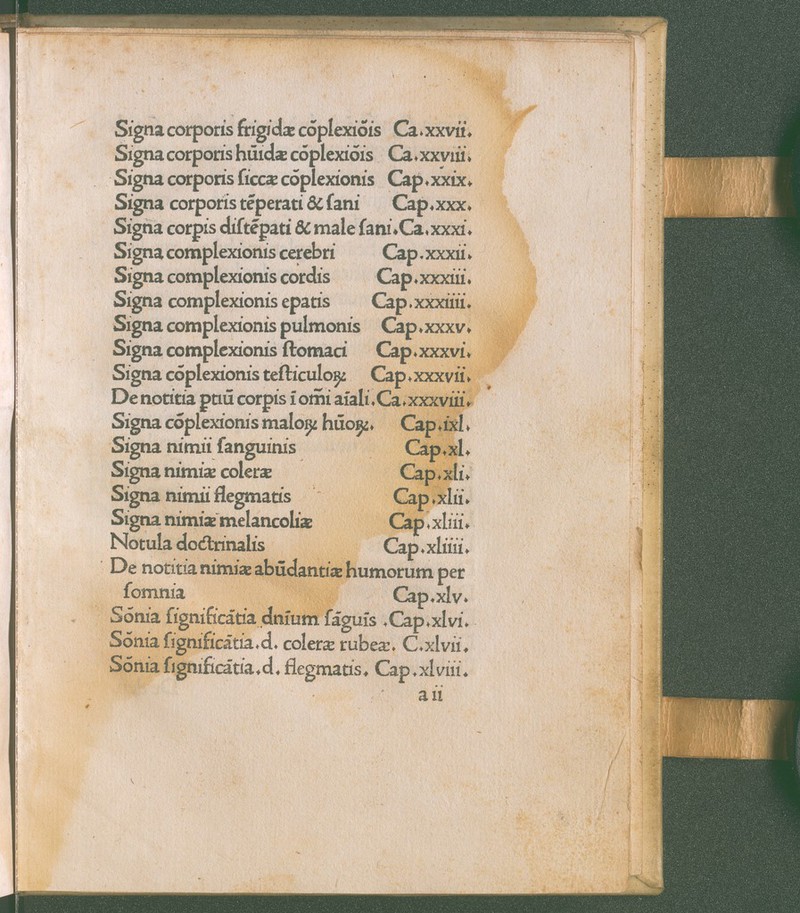 Signa corporis frigidæ cõplexiõis Ca.xxvii.
Signa corporis hũidæ cõplexiõis Ca.xxviii.
Signa corporis ſiccæ cõplexionis Cap.xxix.
Signa corporis tẽperati & ſani Cap.xxx.
Signa corꝑis diſtẽꝑati & male ſani.Ca.xxxi.
Signa complexionis cerebri Cap.xxxii.
Signa complexionis cordis Cap.xxxiii.
Signa complexionis epatis Cap.xxxiiii.
Signa complexionis pulmonis Cap.xxxv.
Signa complexionis ſtomaci Cap.xxxvi.
Signa cõplexionis teſticuloꝝ Cap.xxxvii.
De notitia ꝑtiũ corꝑis ĩ om̃i aĩali.Ca.xxxviii.
Signa cõplexionis maloꝝ hũoꝝ. Cap.ixl.
Signa nimii ſanguinis Cap.xl.
Signa nimiæ coleræ Cap.xli.
Signa nimii flegmatis Cap.xlii.
Signa nimiæ melancoliæ Cap.xliii.
Notula doctrinalis Cap.xliiii.
De notitia nimiæ abũdantiæ humorum per
ſomnia Cap.xlv.
Sõnia ſignificãtia dnĩum ſãguĩs .Cap.xlvi.
Sõnia ſignificãtia.d. coleræ rubeæ. C.xlvii.
Sõnia ſignificãtia.d. flegmatis. Cap.xlviii.
a ii